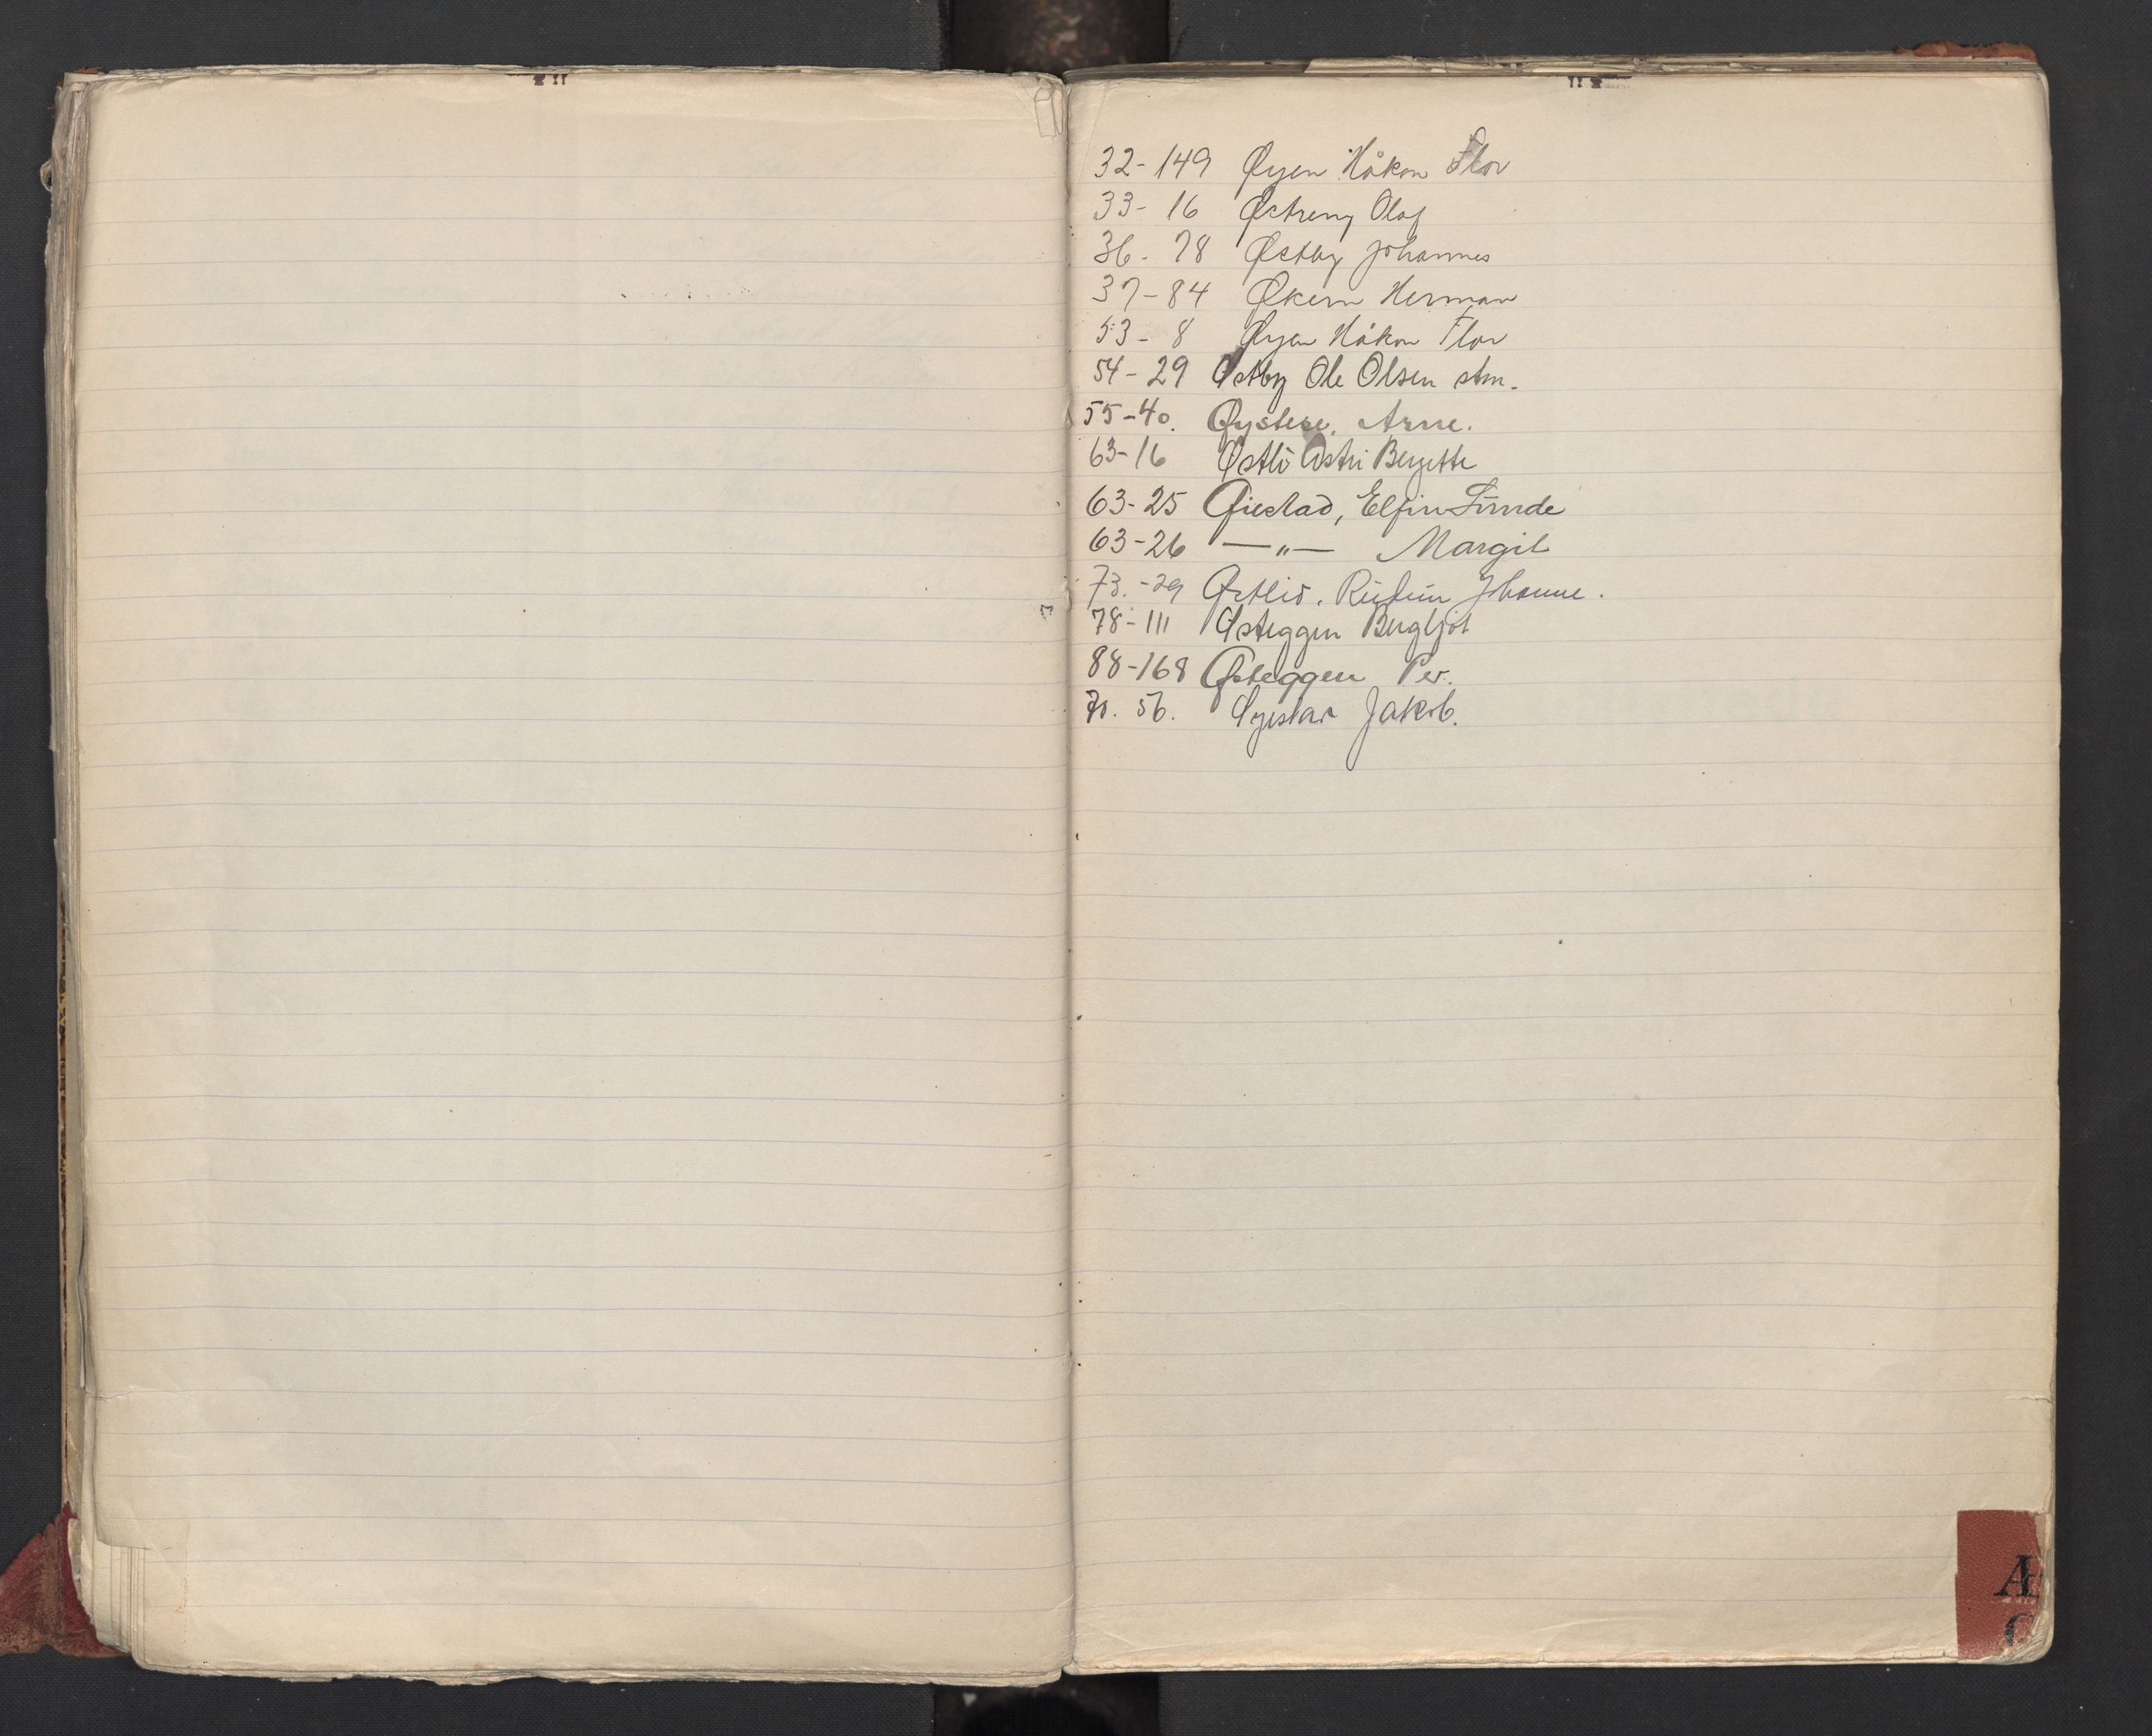 32-149 Øyen Håkon Flor
33-16 Østreng Olaf
36-78 Østby Johannes
37-84 Økern Herman
53-8 Øyen Håkon Flor
54-29 Østby Ole Olsen stm.
55-40. Øystese, Arne.
63-16 Østli Astri Bergette
63-25 Øiestad, Elfin Sunde
63-26 —"— Margit
73.-29 Østlid, Johanne.
78-111 Østeggen Bergljot
88-168 Østeggen Per.
56. Øyestad Jakob.
A